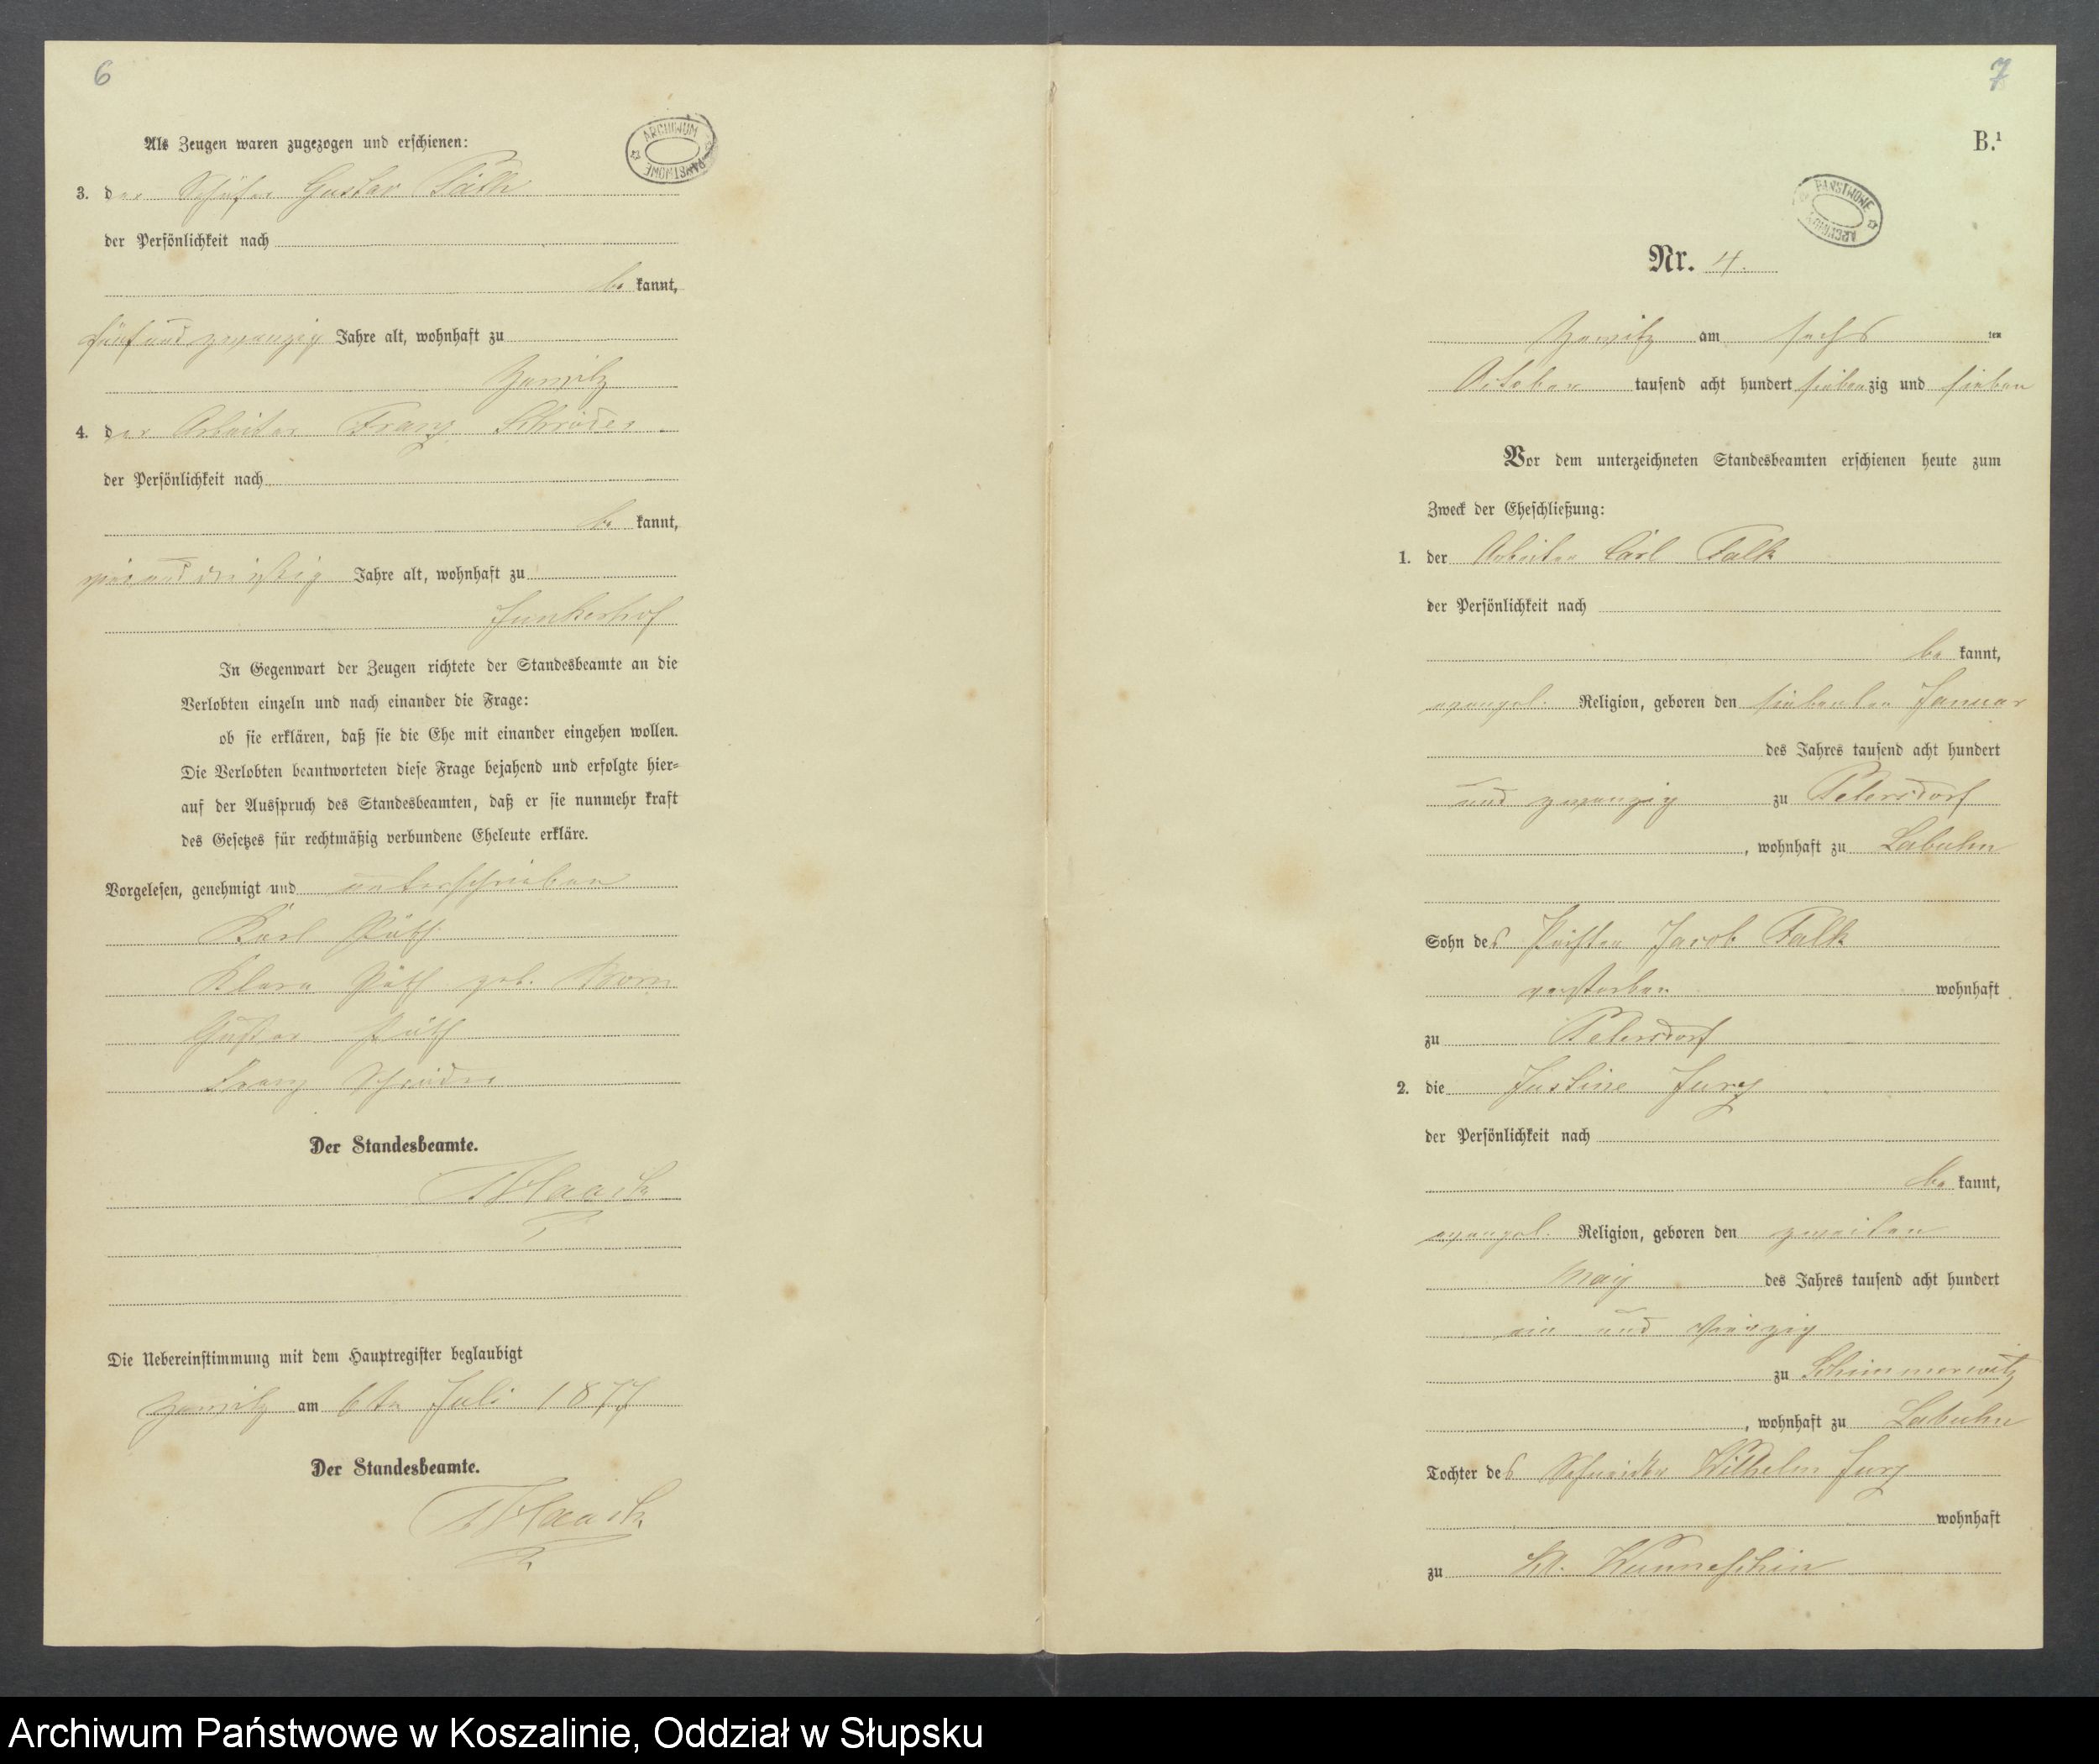 6
Als Zeugen waren zugezogen und erschienen:
ARCHIWUM PAŃSTWOWE
3. der Schäfer Gustav Päth
der Persönlichkeit nach
be kannt,
fünf und zwanzig Jahre alt, wohnhaft zu
Zewitz
4. der Arbeiter Franz Schröder
der Persönlichkeit nach
be kannt,
und dreißig Jahre alt, wohnhaft zu
Junkerhof
In Gegenwart der Zeugen richtete der Standesbeamte an die
Verlobten einzeln und nach einander die Frage:
ob sie erklären, daß sie die Ehe mit einander eingehen wollen.
Die Verlobten beantworteten diese Frage bejahend und erfolgte hier=
auf der Ausspruch des Standesbeamten, daß er sie nunmehr kraft
des Gesetzes für rechtmäßig verbundene Eheleute erkläre.
Vorgelesen, genehmigt und unterschrieben
Karl Päth
Klara Päth geb. Born
Gustav Päth
Franz Schröder
Der Standesbeamte.
Haack
Die Uebereinstimmung mit dem Hauptregister beglaubigt
Zewitz am 6ten Juli 1877
Der Standesbeamte.
Haack
7
B.¹
PAŃSTWOWE ARCHIWUM
Nr. 4.
Zewitz am sechs ten
October tausend acht hundert siebenzig und sieben
Vor dem unterzeichneten Standesbeamten erschienen heute zum
Zweck der Eheschließung:
1. der Arbeiter Carl Falk
der Persönlichkeit nach
be kannt,
evangel. Religion, geboren den siebenten Januar
des Jahres tausend acht hundert
und zwanzig zu Petersdorf
, wohnhaft zu Labuhn
Sohn des Jacob Falk
verstorben wohnhaft
zu Petersdorf
2. die Justine Jury
der Persönlichkeit nach
be kannt,
evangel. Religion, geboren den zweiten
May des Jahres tausend acht hundert
ein und vierzig
zu Schimmerwitz
, wohnhaft zu Labuhn
Tochter des Schneider Wilhelm Jury
wohnhaft
zu Kl. Wunneschin
Archiwum Państwowe w Koszalinie, Oddział w Słupsku